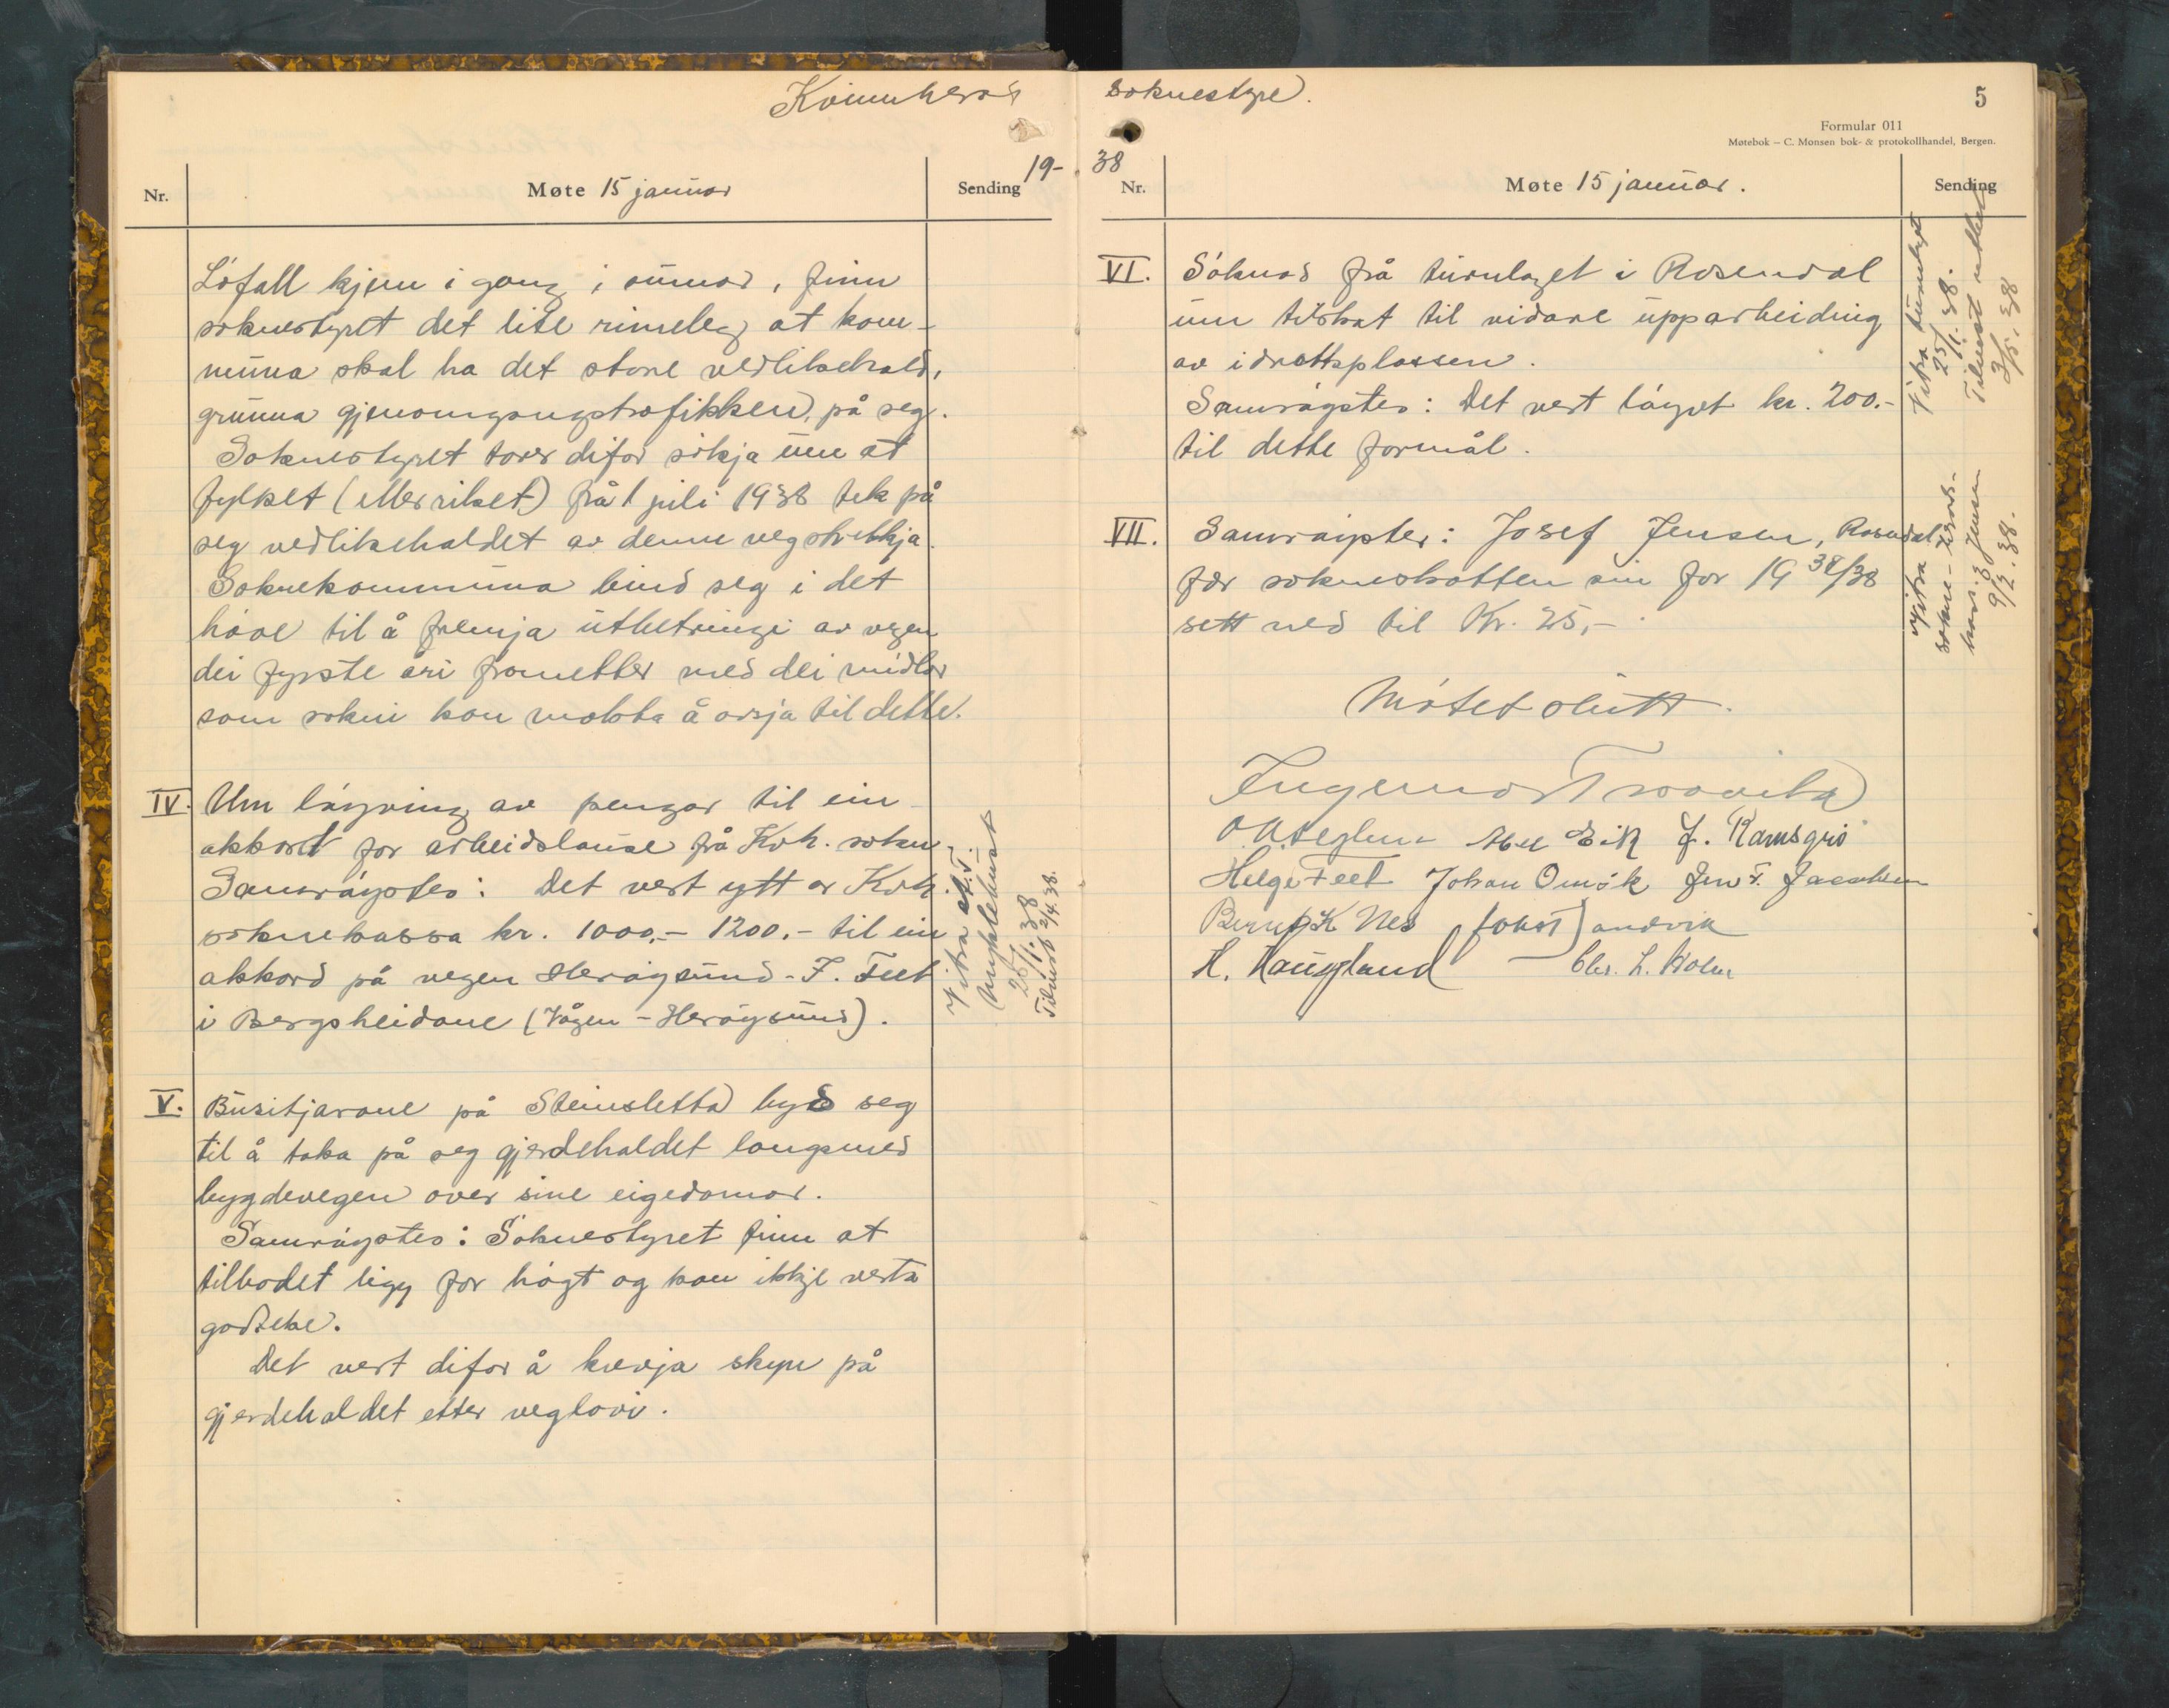 Kvinnherad soknestyre.
5
Formular 011
Møtebok – C. Monsen bok- & protokollhandel, Bergen.
19- 38
Nr.
Møte 15 januar
Sending
Løfall kjem i gang i sumar, finn
soknestyret det lite rimeleg at kom-
muna skal ha det store vedlikehald,
grunna gjenomgangstrafikken, på seg.
Soknestyret torer difor søkja um at
fylket (eller riket) frå 1 juli 1938 tek på
seg vedlikehaldet av denne vegstrekkja.
Soknekommuna bind seg i det
høve til å fremja utbetringi av vegen
dei fyrste åri frametter med dei midlar
som sokni kan makta å avsja til dette.
IV. Um løyving av pengar til ein
akkord for arbeidslause frå Kvh. sokn.
Samrøystes: Det vert ytt av Kvh.
soknekassa kr. 1000,- 1200.- til ein
akkord på vegen Herøysund - F. Feet
i Bergsheidane (Vågen - Herøysund).
Vitra A.T.
25/1.38
Tilvist 2/4.38.
V. Busitjarane på Steinsletta byd seg
til å taka på seg gjerdehaldet langsmed
bygdevegen over sine eigedomar.
Samrøystes: Soknestyret finn at
tilbodet ligg for høgt og kan ikkje verta
godteke.
Det vert difor å krevja skyn på
gjerdehaldet etter veglovi.
Nr.
Møte 15 januar.
Sending
VI. Søknad frå turnlaget i Rosendal
um tilskot til vidare upparbeiding
av idrottsplassen.
Samrøystes: Det vert løyvt kr. 200.-
til dette formål.
Vitra turnlaget
25/1.38.
Tilvist
3/5.38
VII. Samrøystes: Josef Jensen, Rosendal
fær sokneskatten sin for 19 37/38
sett ned til Kr. 25,-
Vitra
sokne- herads-
kass. & Jensen
9/2.38.
Møtet slutt.
Ingemar Traavik
Abel Eik J. Ramsgrø
Helge Feet Johan Omvik Jens F. Jacobsen
Bernt K Nes Johs Sandvik
H. Haugland Chr. L. Holm